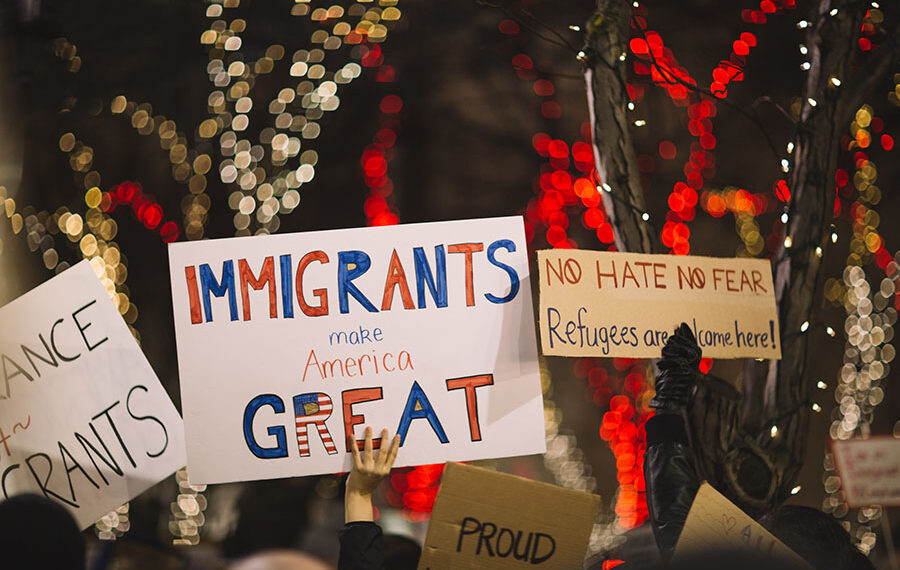 ANCE
GRANTS
IMMIGRANTS
make
America
GREAT
NO HATE NO FEAR
Refugees are come here!
PROUD